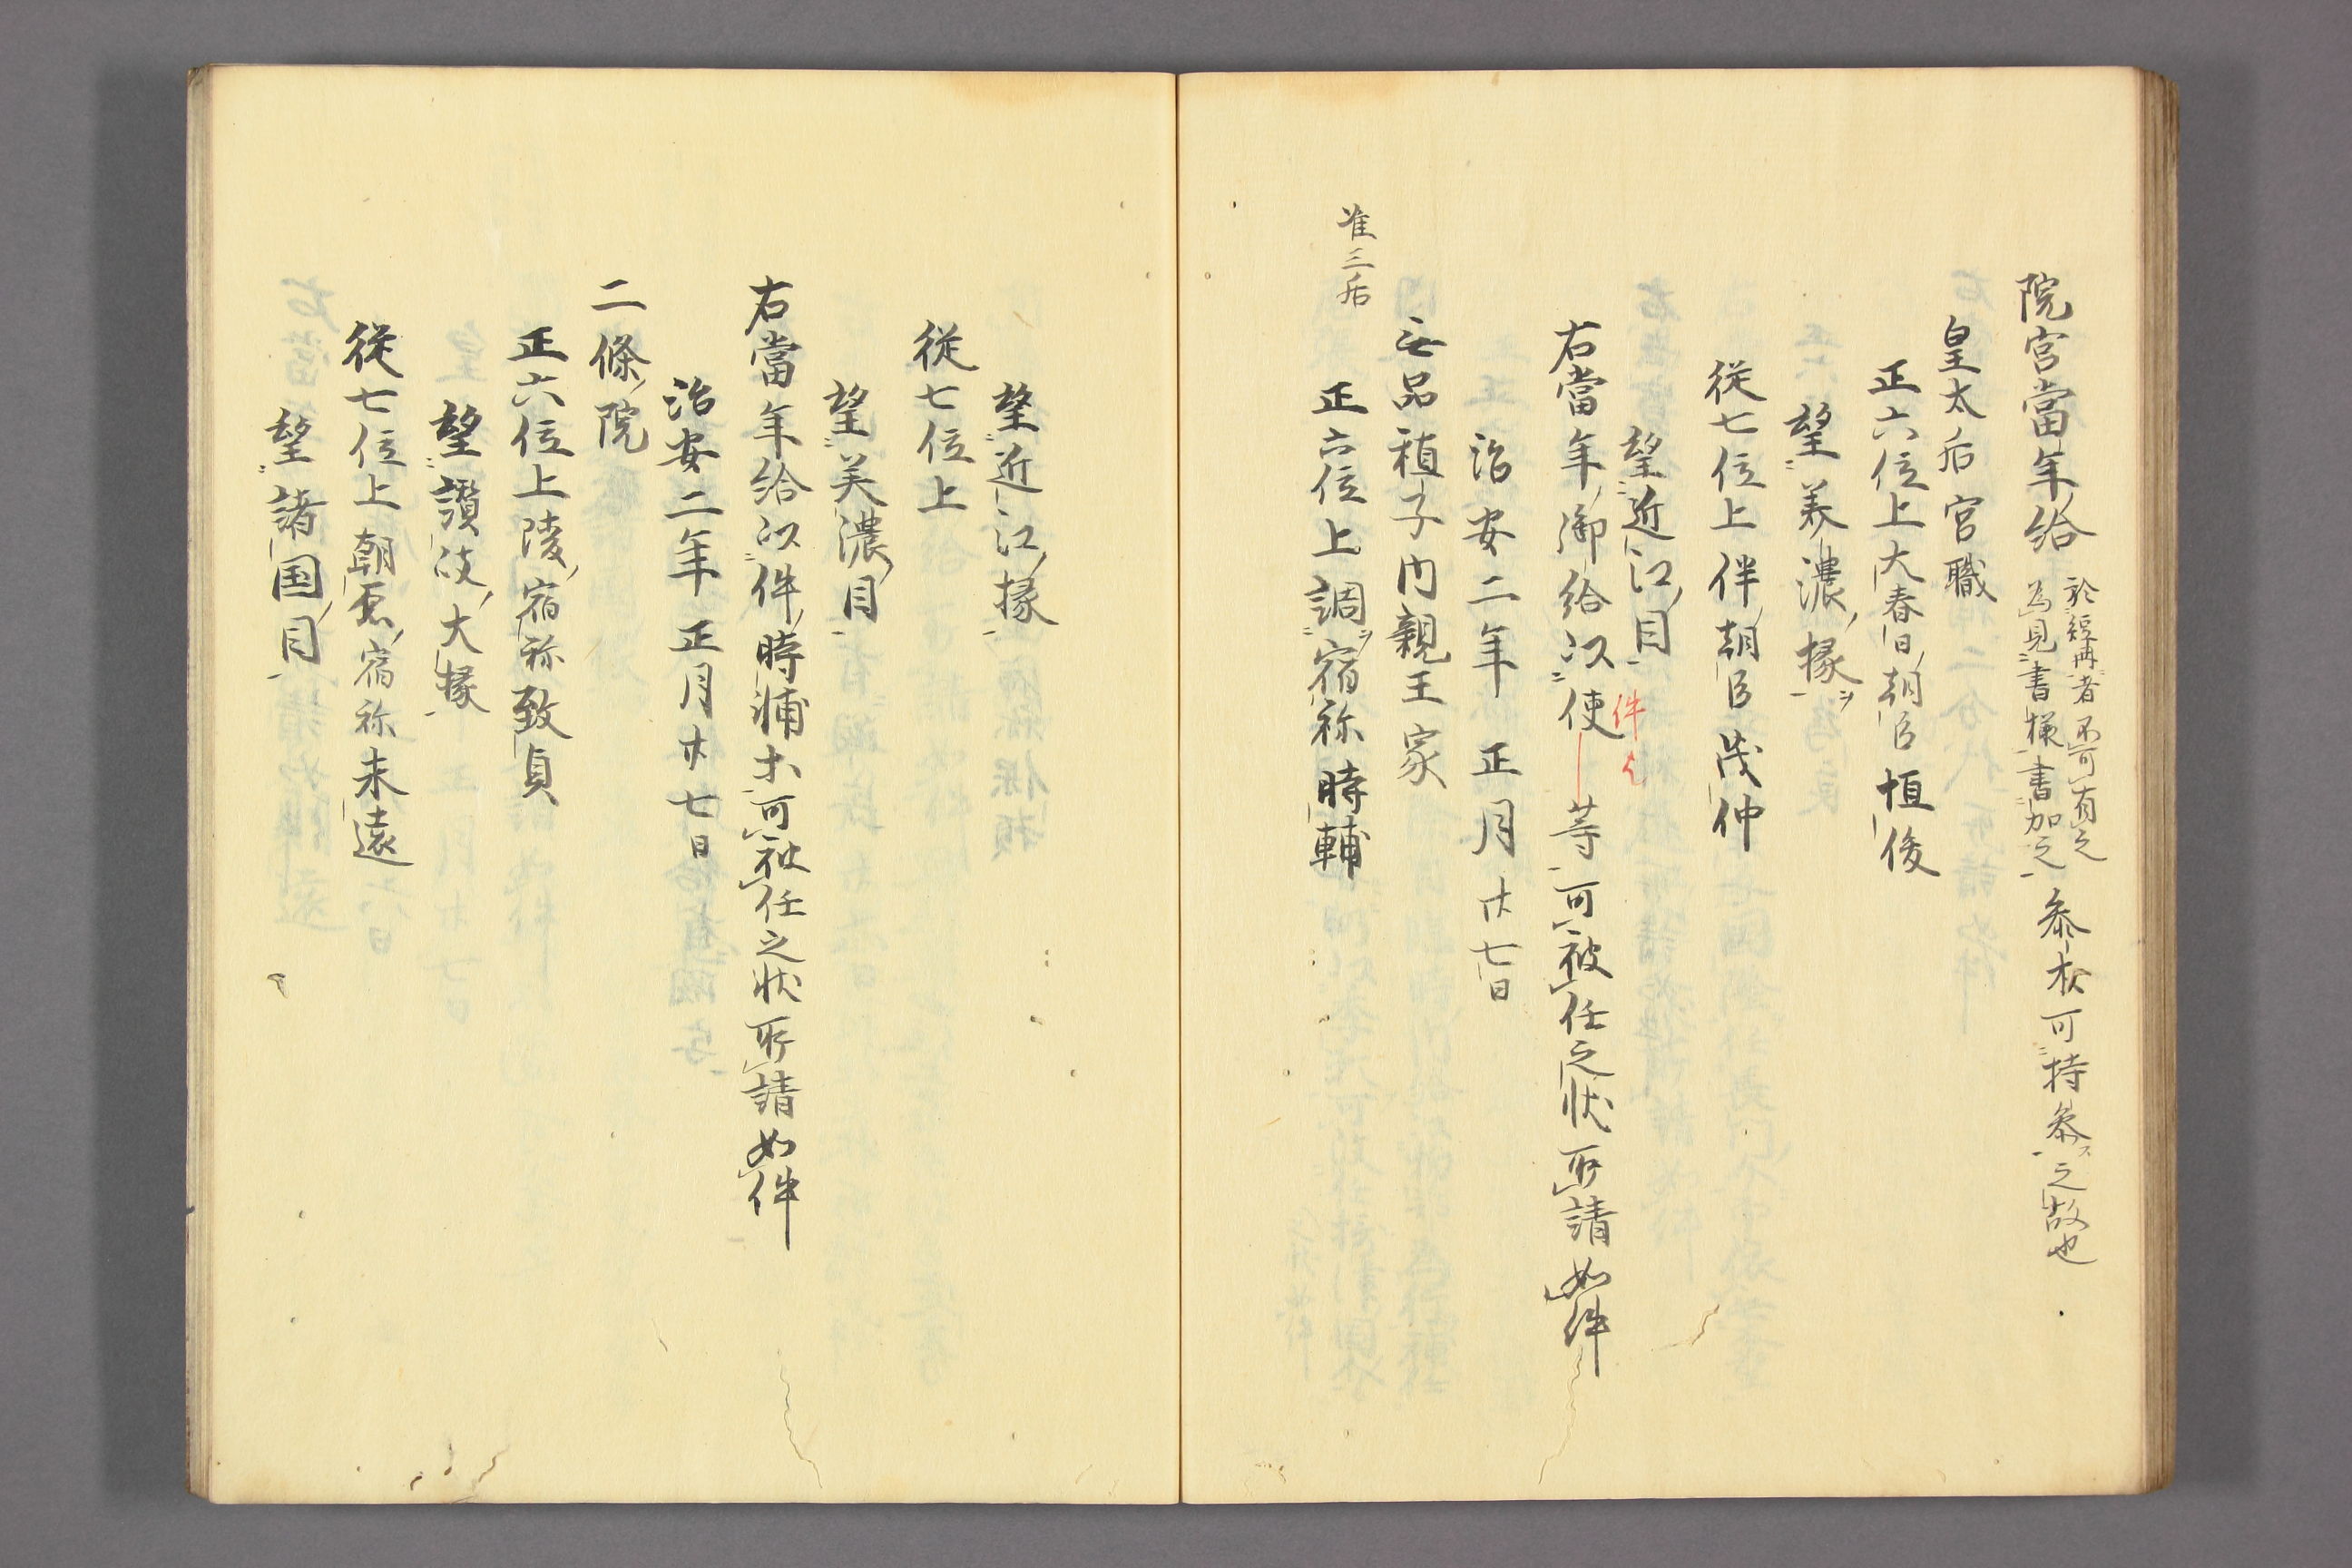 院宮當年給 於短冊者不可有之
為見書様書加之 参秋可持参ス之故也
皇太后宮職
正六位上大春日朝臣恒俊
望美濃掾ヲ
従七位上伴朝臣茂仲
望近江目
右當年御給以使等可被任之状所請如件
件人
治安二年正月廿七日
准三后
無品禎子内親王家
正六位上調宿祢時輔
望近江掾
従七位上
望美濃目
右當年給以件時浦木可被任之状所請如件
治安二年正月廿七日
二條院
正六位上陵宿祢致貞
望讃岐大掾
従七位上朝原宿祢未遠
望諸国目